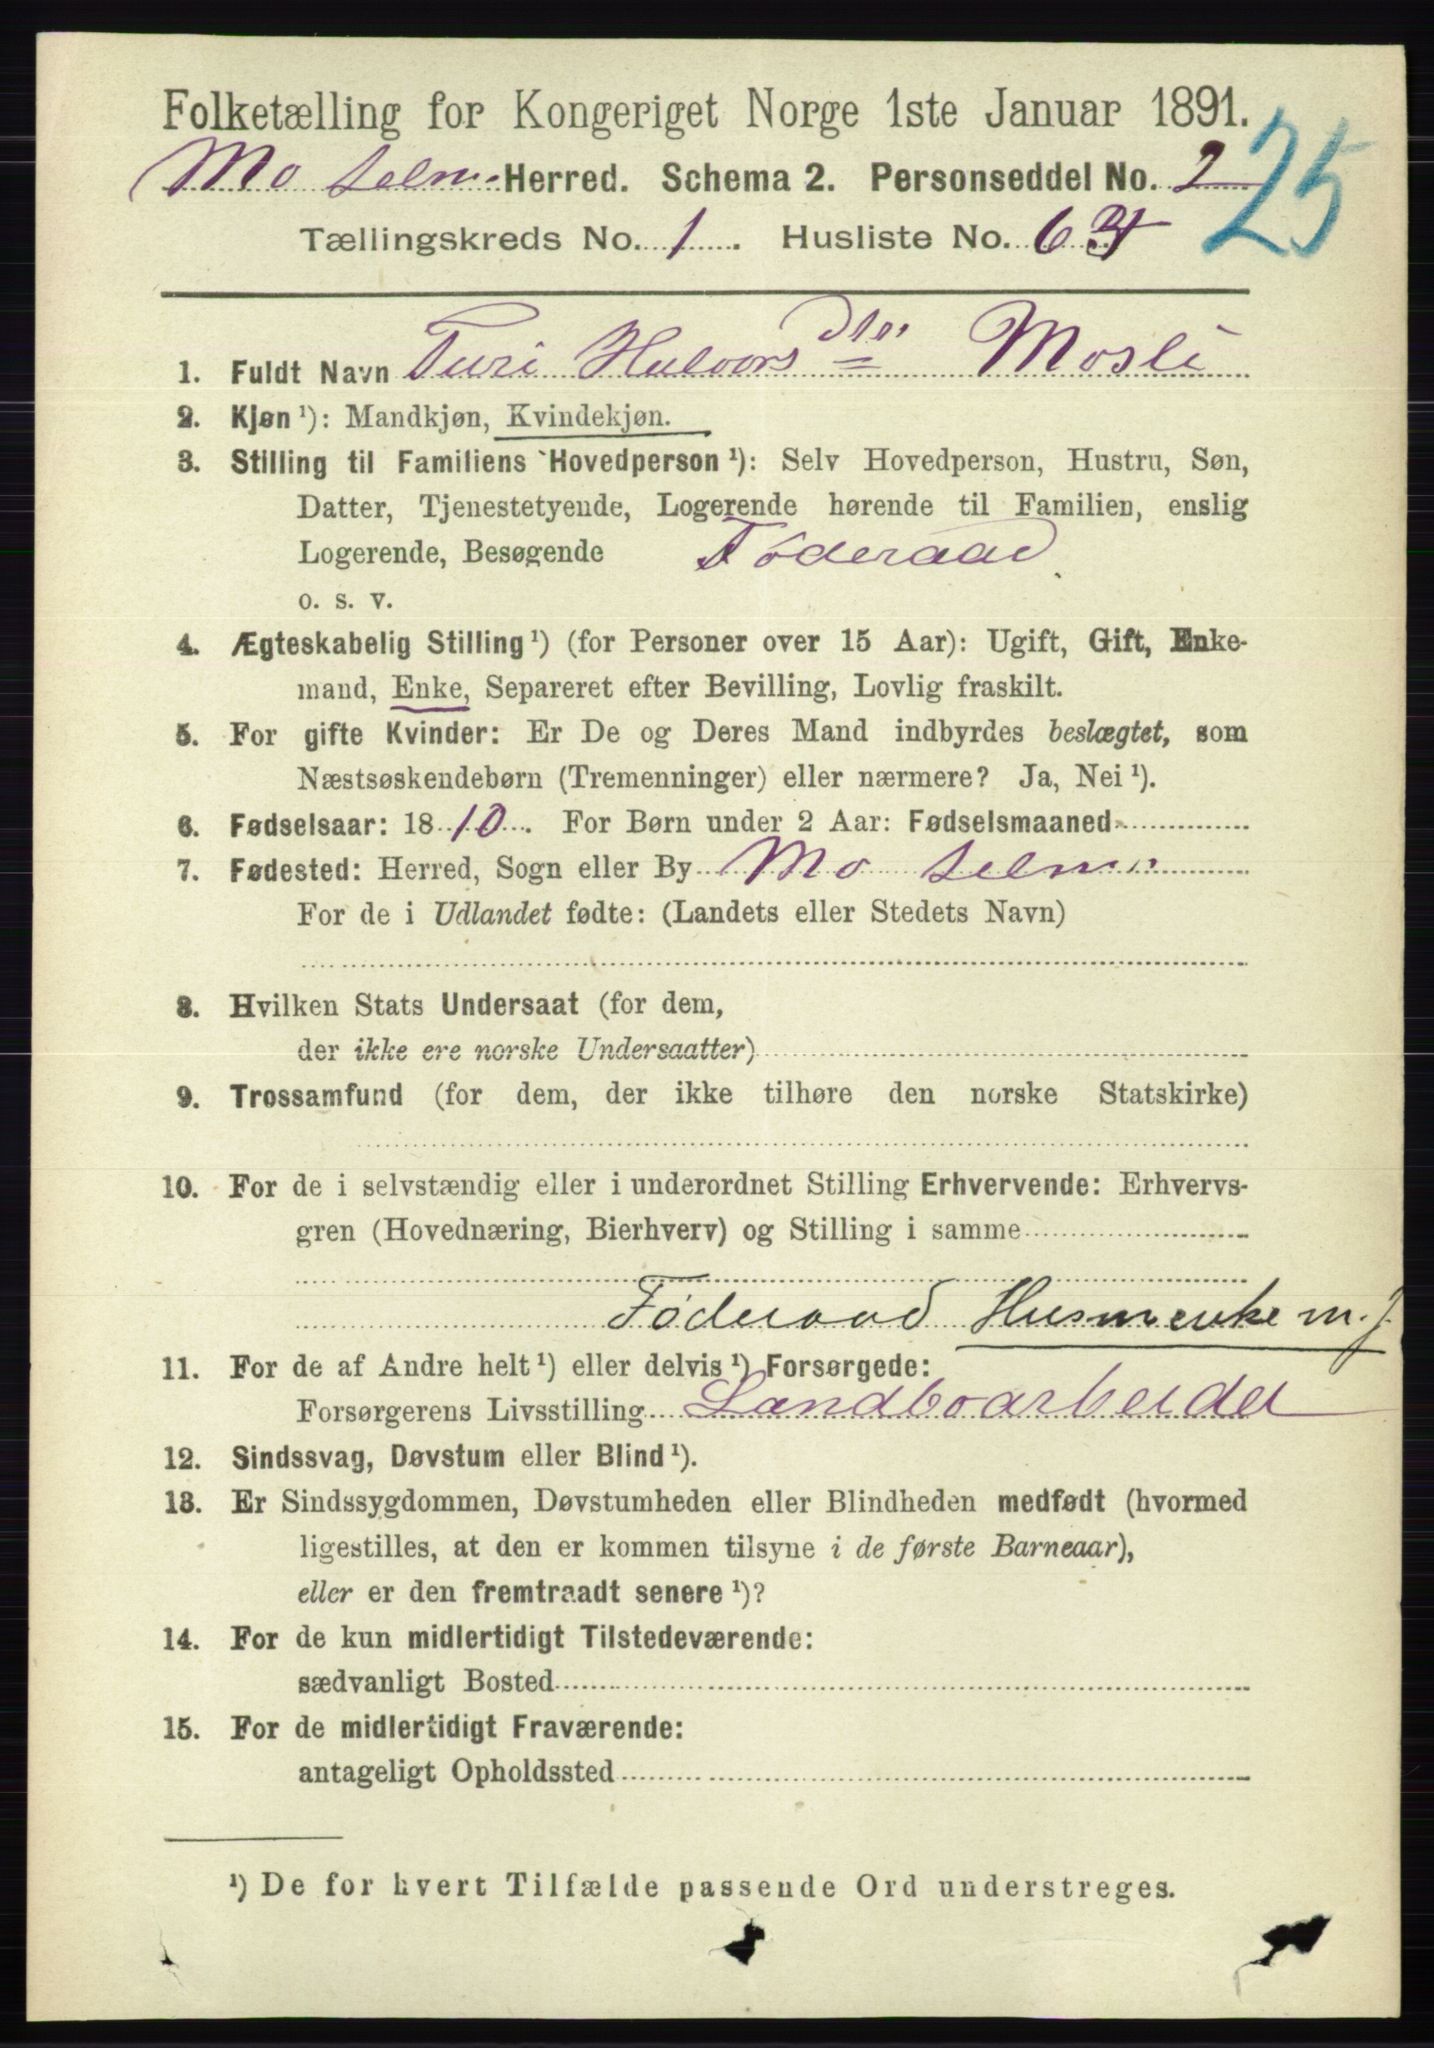 Folketælling for Kongeriget Norge 1ste Januar 1891.
25
Mo Telm. Herred. Schema 2. Personseddel No. 2
Tællingskreds No. 1. Husliste No. 64
1. Fuldt Navn Turi Halvorsdtr Mosli
2. Kjøn ¹): Mandkjøn, Kvindekjøn.
3. Stilling til Familiens Hovedperson ¹): Selv Hovedperson, Hustru, Søn,
Datter, Tjenestetyende, Logerende hørende til Familien, enslig
Logerende, Besøgende Føderaad
o. s. v.
4. Ægteskabelig Stilling ¹) (for Personer over 15 Aar): Ugift, Gift, Enke-
mand, Enke, Separeret efter Bevilling, Lovlig fraskilt.
5. For gifte Kvinder: Er De og Deres Mand indbyrdes beslægtet, som
Næstsøskendebørn (Tremenninger) eller nærmere? Ja, Nei ¹).
6. Fødselsaar: 1810. For Børn under 2 Aar: Fødselsmaaned
7. Fødested: Herred, Sogn eller By Mo Telm
For de i Udlandet fødte: (Landets eller Stedets Navn)
8. Hvilken Stats Undersaat (for dem,
der ikke ere norske Undersaatter)
9. Trossamfund (for dem, der ikke tilhøre den norske Statskirke)
10. For de i selvstændig eller i underordnet Stilling Erhvervende: Erhvervs-
gren (Hovednæring, Bierhverv) og Stilling i samme
Føderaad Husmenke m. j.
11. For de af Andre helt ¹) eller delvis ¹) Forsørgede:
Forsørgerens Livsstilling Landboarbeider
12. Sindssvag, Døvstum eller Blind ¹).
13. Er Sindssygdommen, Døvstumheden eller Blindheden medfødt (hvormed
ligestilles, at den er kommen tilsyne i de første Barneaar),
eller er den fremtraadt senere ¹)?
14. For de kun midlertidigt Tilstedeværende:
sædvanligt Bosted
15. For de midlertidigt Fraværende:
antageligt Opholdssted
¹) De for hvert Tilfælde passende Ord understreges.